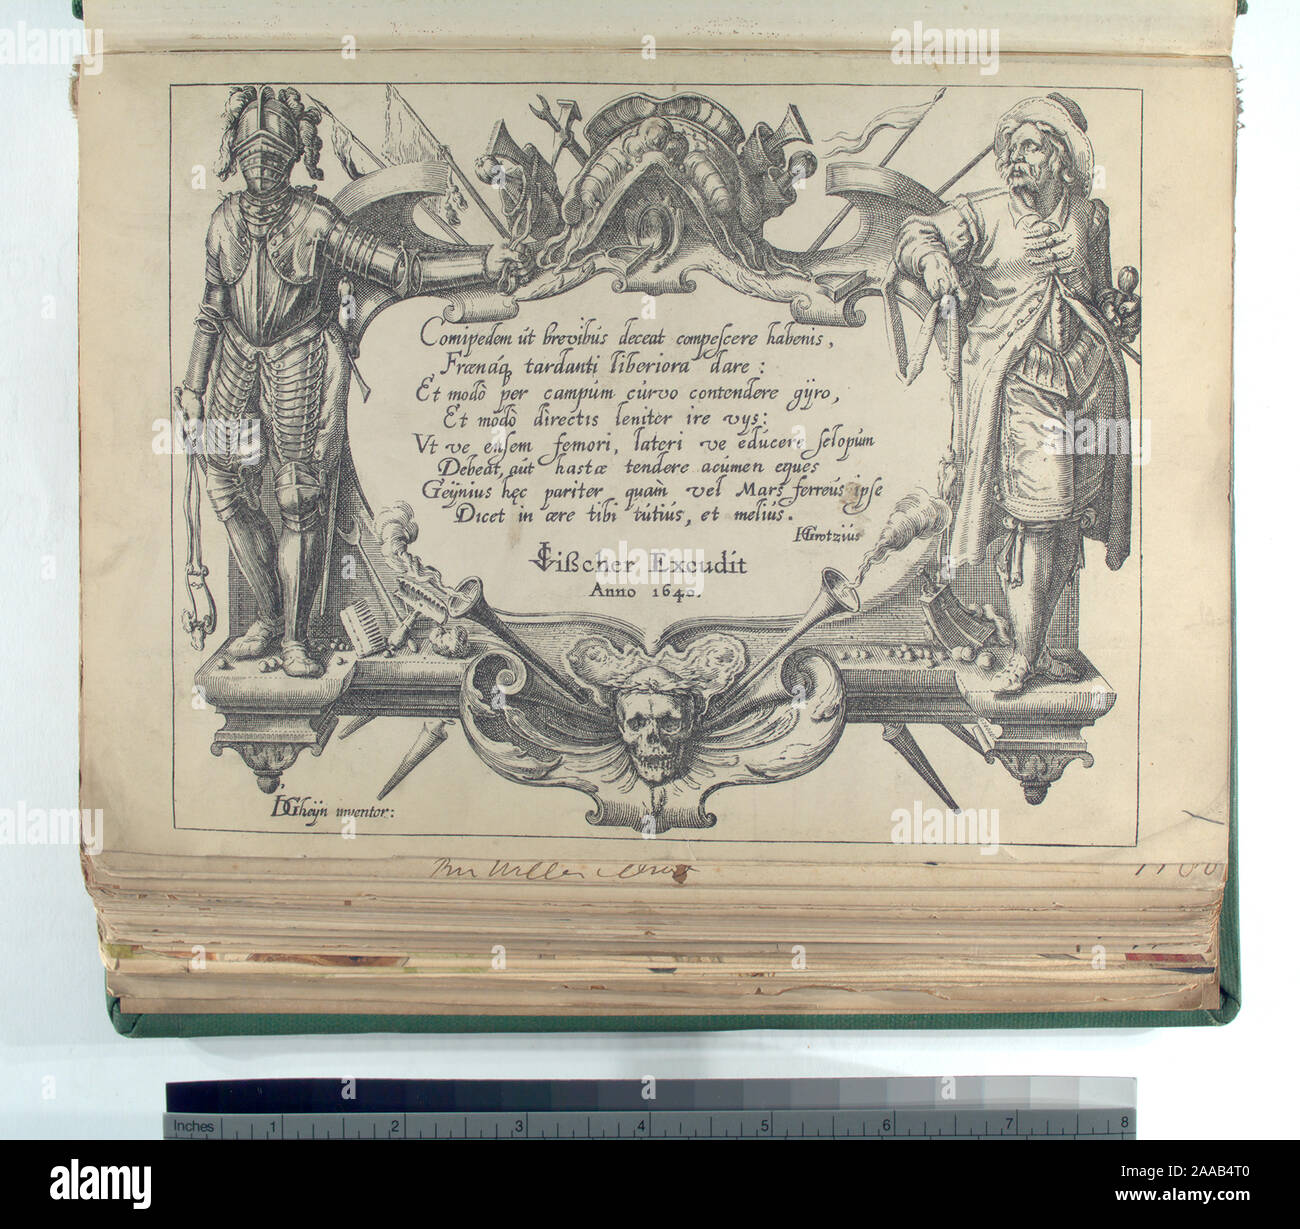 Cornipedem út brevibús deceat compescere habenis,
Frænáq tardanti liberiora dare:
Et modò per campúm cúrvo contendere gÿro,
Et modò directis leniter ire vÿs:
Vt ve ensem femori, lateri ve educere sclopúm
Debeat, aut hastæ tendere acúmen eques
Geÿnius hęc pariter quàm vel Mars ferreús ipse
Dicet in ære tibi tútiús, et meliús.
HGrotziús
CIVißcher Excudit
Anno 1640.
IDGheÿn inventor:
Inches 1 2 3 4 5 6 7 8
alamy
Image ID: 2AAB4T0
www.alamy.com